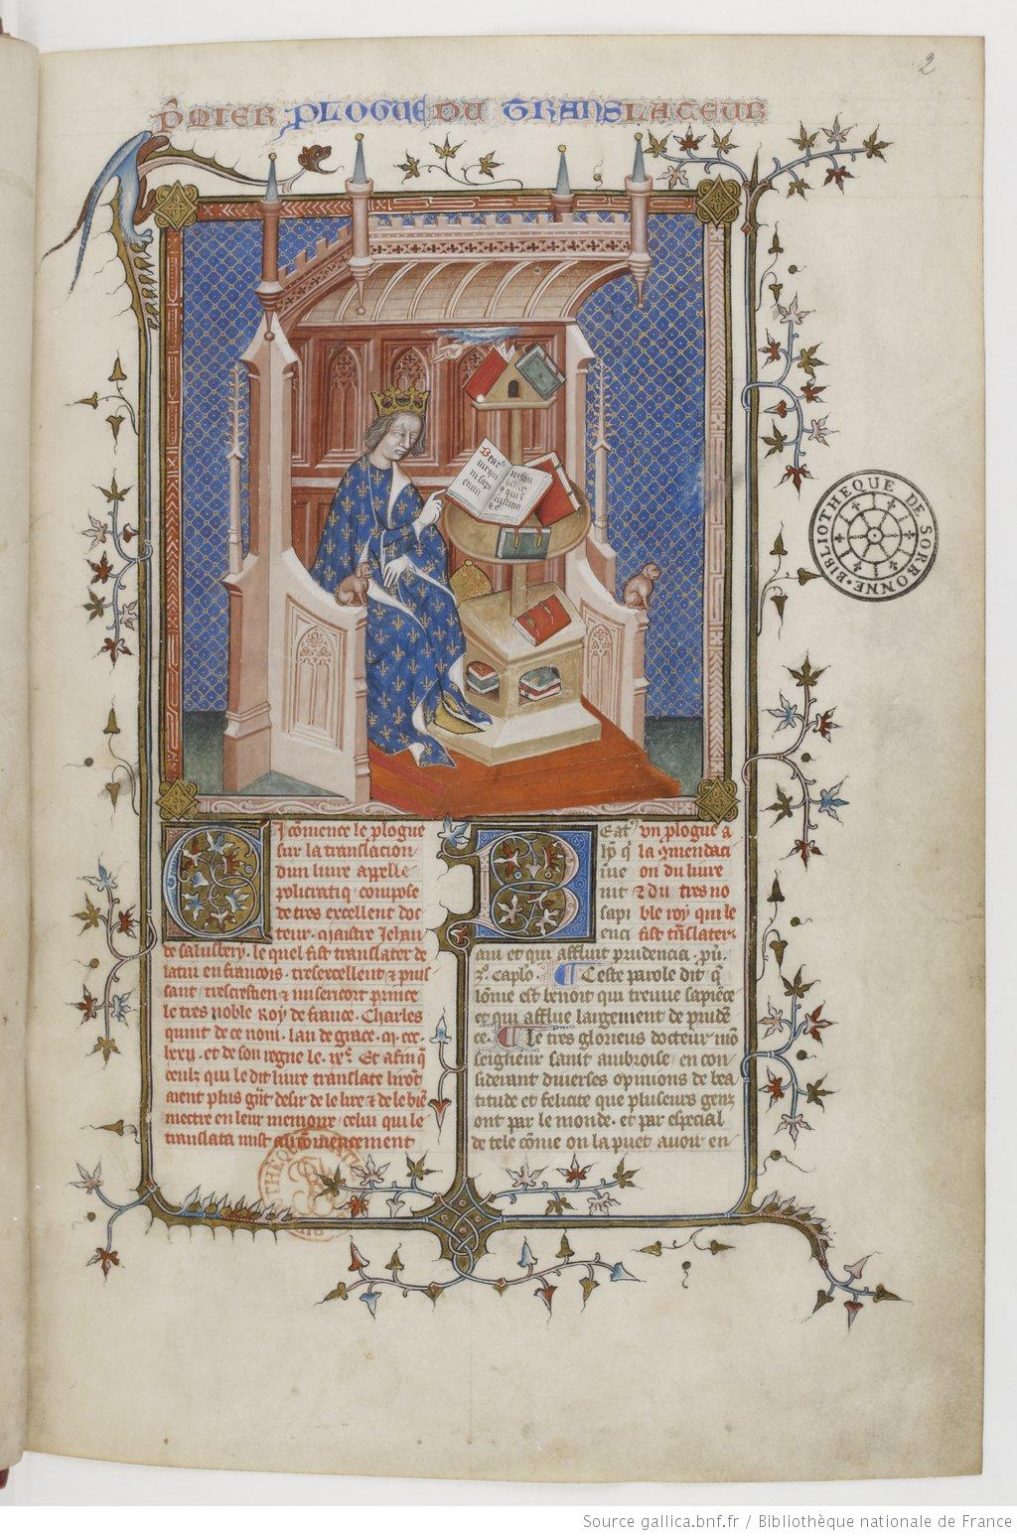 2
PMIER PLOGUE DU TRANSLATEUR
Beat9
BIBLIOTHEQUE DE SORBONNE
Ci cōmence le plogue
sur la translacion
dun liure apelle
policratiq compose
de tres excellent doc
teur. Maistre Jehan
de salusbery. le quel fist translater de
latin en francois. tresexcellent & puis
sant trescrestien & misericort prince
le tres noble Roy de france. Charles
quint de ce nom. lan de grace. M. ccc.
lxxij. et de son regne le. ixe. Et afin q̄
ceulx qui le dit liure translate liront
aient plus grāt desir de le lire & de le biē
mettre en leur memoire. celui qui le
translata mist au cōmencement
un plogue a
la cōmendaci
on du liure
& du tres no
ble roy qui le
fist trāslater.
Beat9
hō q̄
inue
nit
sapi
enci
am et qui affluit prudencia. pu.
3o. caplo. Ceste parole dit q̄
lōme est benoit qui treuue sapiēce
et qui afflue largement de prudē
ce. Le tres glorieus docteur mō
seigneur saint ambroise. en con
siderant diuerses opinions de bea
titude et felicite que pluseurs genz
ont par le monde. et par especial
de tele cōme on la puet auoir en
Source gallica.bnf.fr / Bibliothèque nationale de France